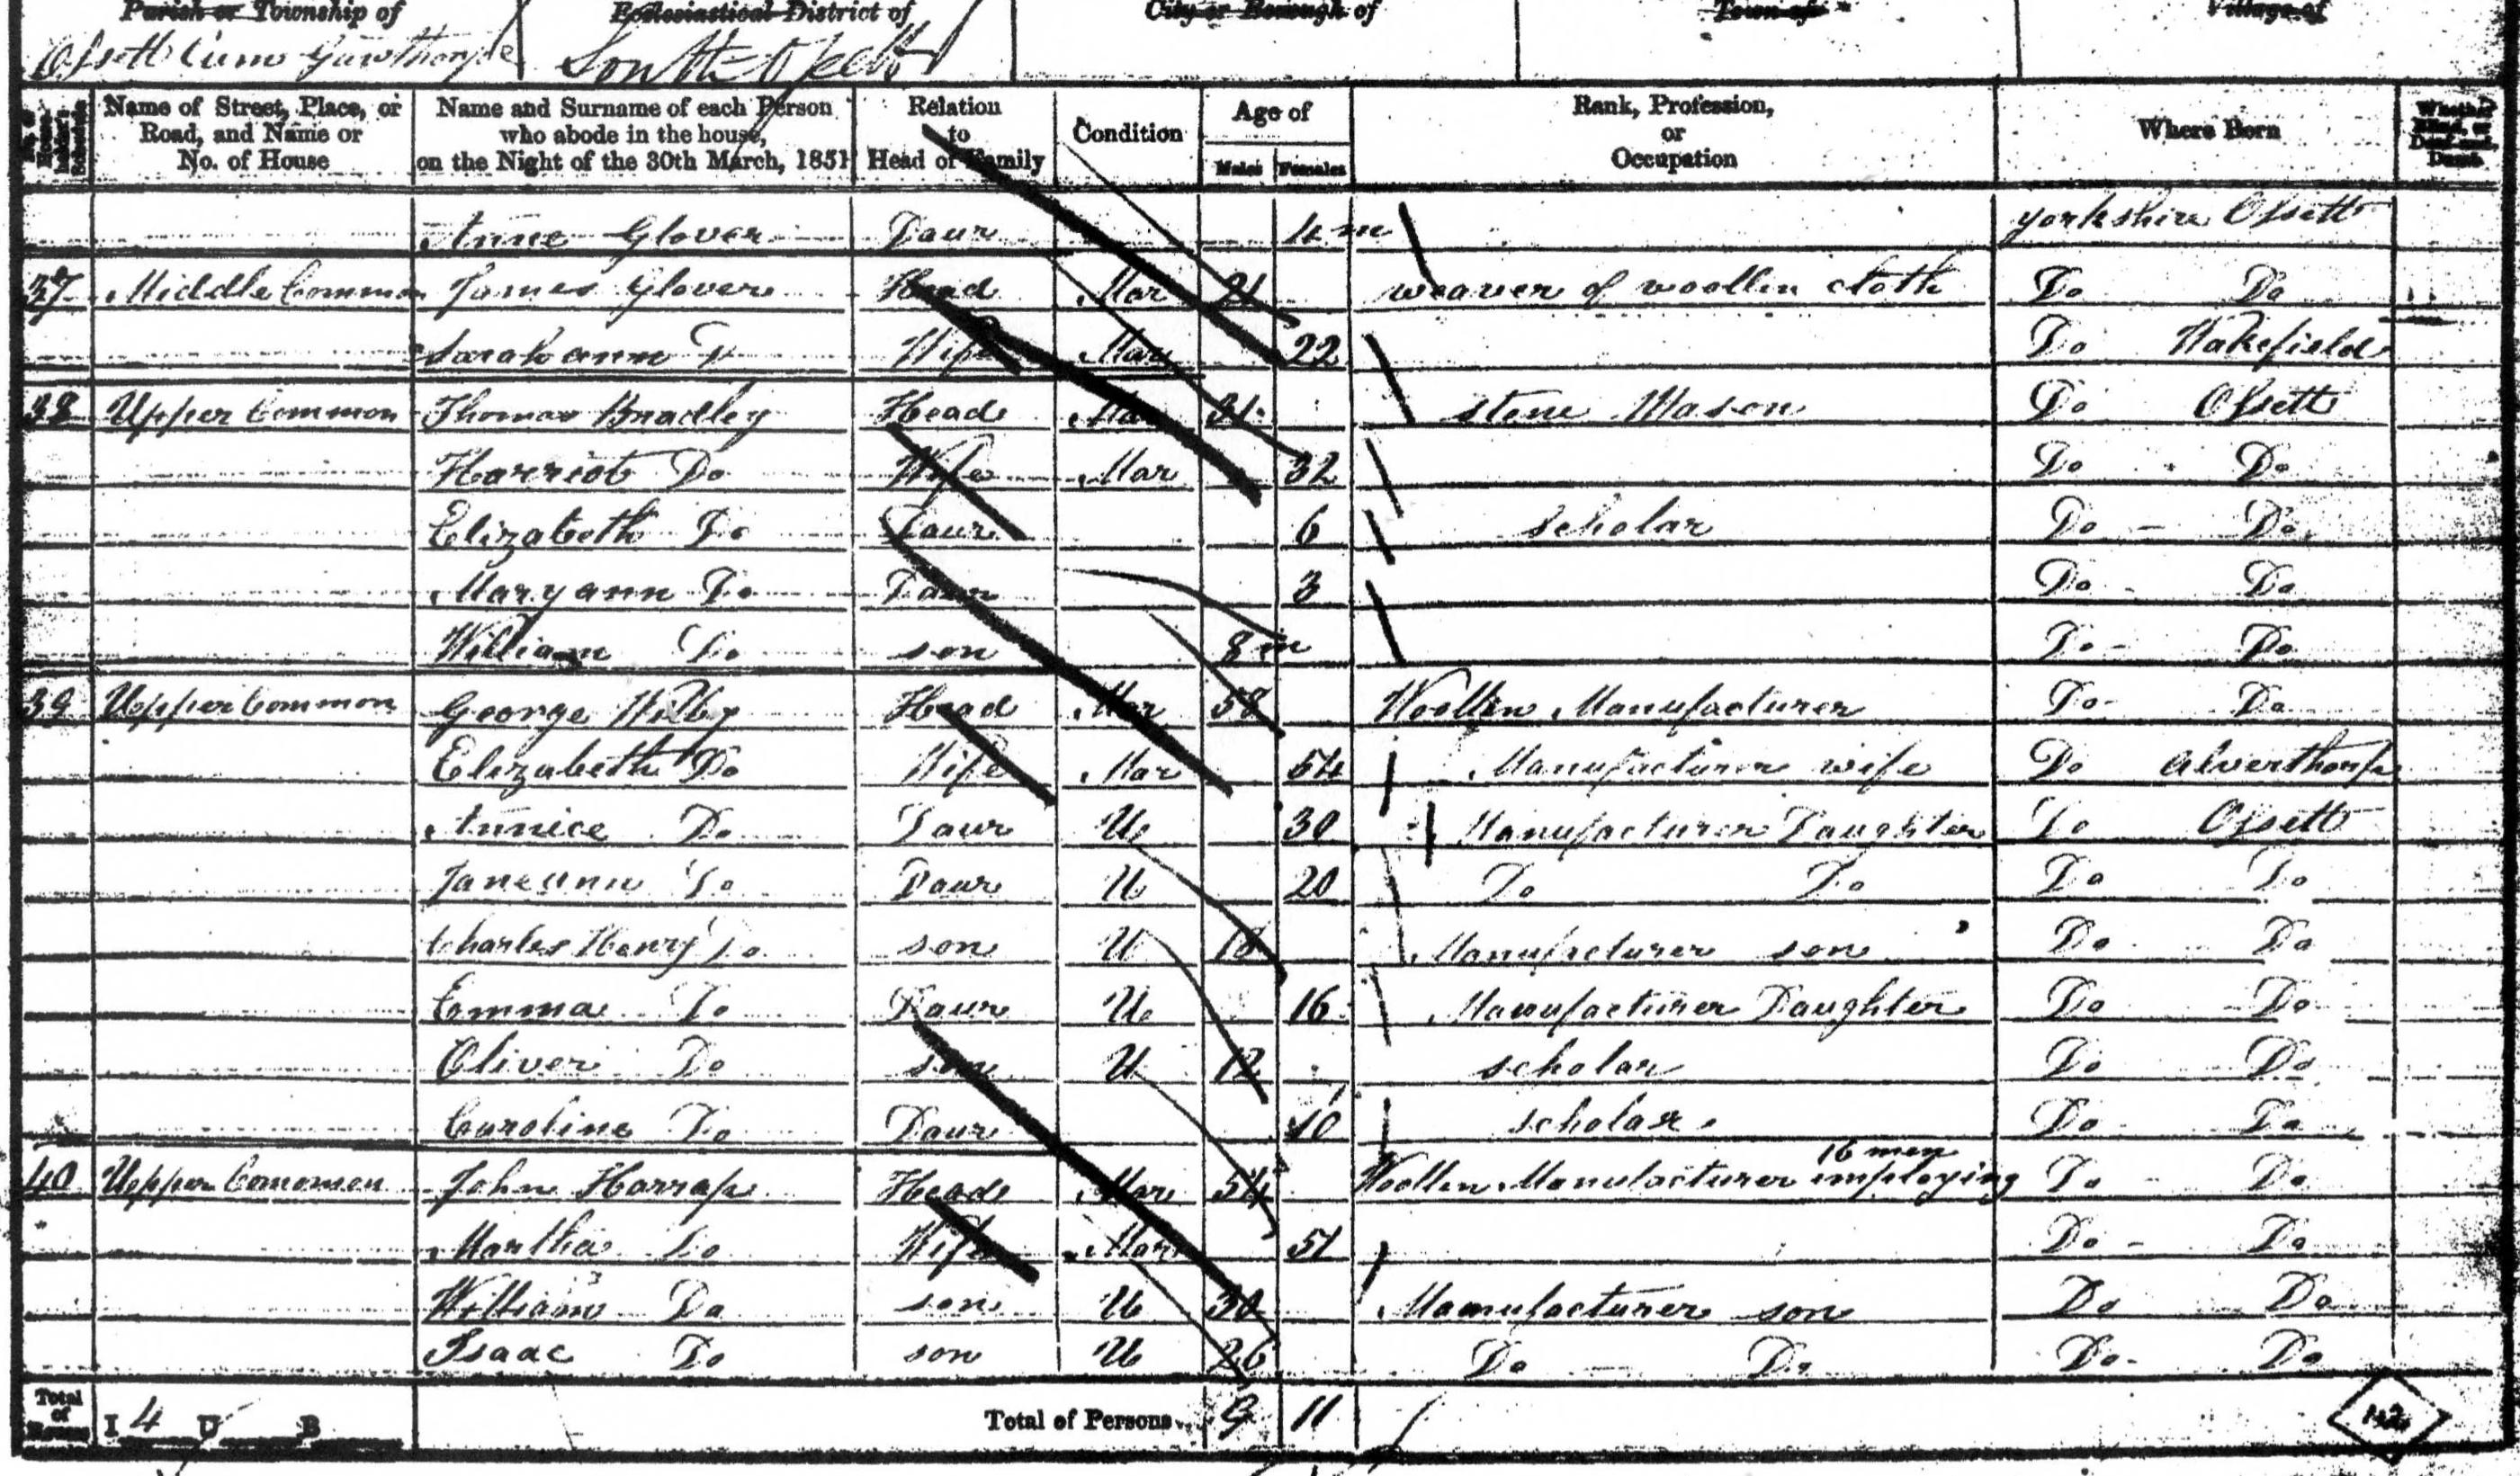 Parish or Township of Ecclesiastical District of City or Borough of Town of Village of
Ossett Cum Gawthorpe South Ossett
Name of Street, Place, or Road, and Name or No. of House
Name and Surname of each Person who abode in the house, on the Night of the 30th March, 1851
Relation to Head of Family
Condition
Age of
Males Females
Rank, Profession, or Occupation
Where Born
Whether Blind, or Deaf-and-Dumb
Anne Glover Daur 4 m Yorkshire Ossett
37 Middle Common James Glover Head Mar 21 weaver of woollen cloth Do Do
Sarah ann D Wife Mar 22 Do Wakefield
38 Upper Common Thomas Bradley Head Mar 31 stone Mason Do Ossett
Harriot Do Wife Mar 32 Do Do
Elizabeth Do Daur 6 scholar Do - Do
Mary ann Do Daur 3 Do - Do
William Do son 8 m Do - Do
39 Upper Common George Wilby Head Mar 58 Woollen Manufacturer Do - Do
Elizabeth Do Wife Mar 54 Manufacturer wife Do Alverthorpe
Annice Do Daur U 30 Manufacturer Daughter Do Ossett
Jane ann Do Daur U 20 Do Do Do Do
Charles Henry Do son U 18 Manufacturer son Do Do
Emma Do Daur U 16 Manufacturer Daughter Do - Do
Oliver Do son U 12 scholar Do - Do
Caroline Do Daur 10 scholar Do - Do
16 men
40 Upper Comomon John Harrap Head Mar 54 Woollen Manufacturer employing Do - Do
Martha Do Wife Mar 51 Do - Do
William Do son U 30 Manufacturer son Do Do
Isaac Do son U 26 Do - Do Do - Do
Total of Houses I 4 U B Total of Persons 9 11